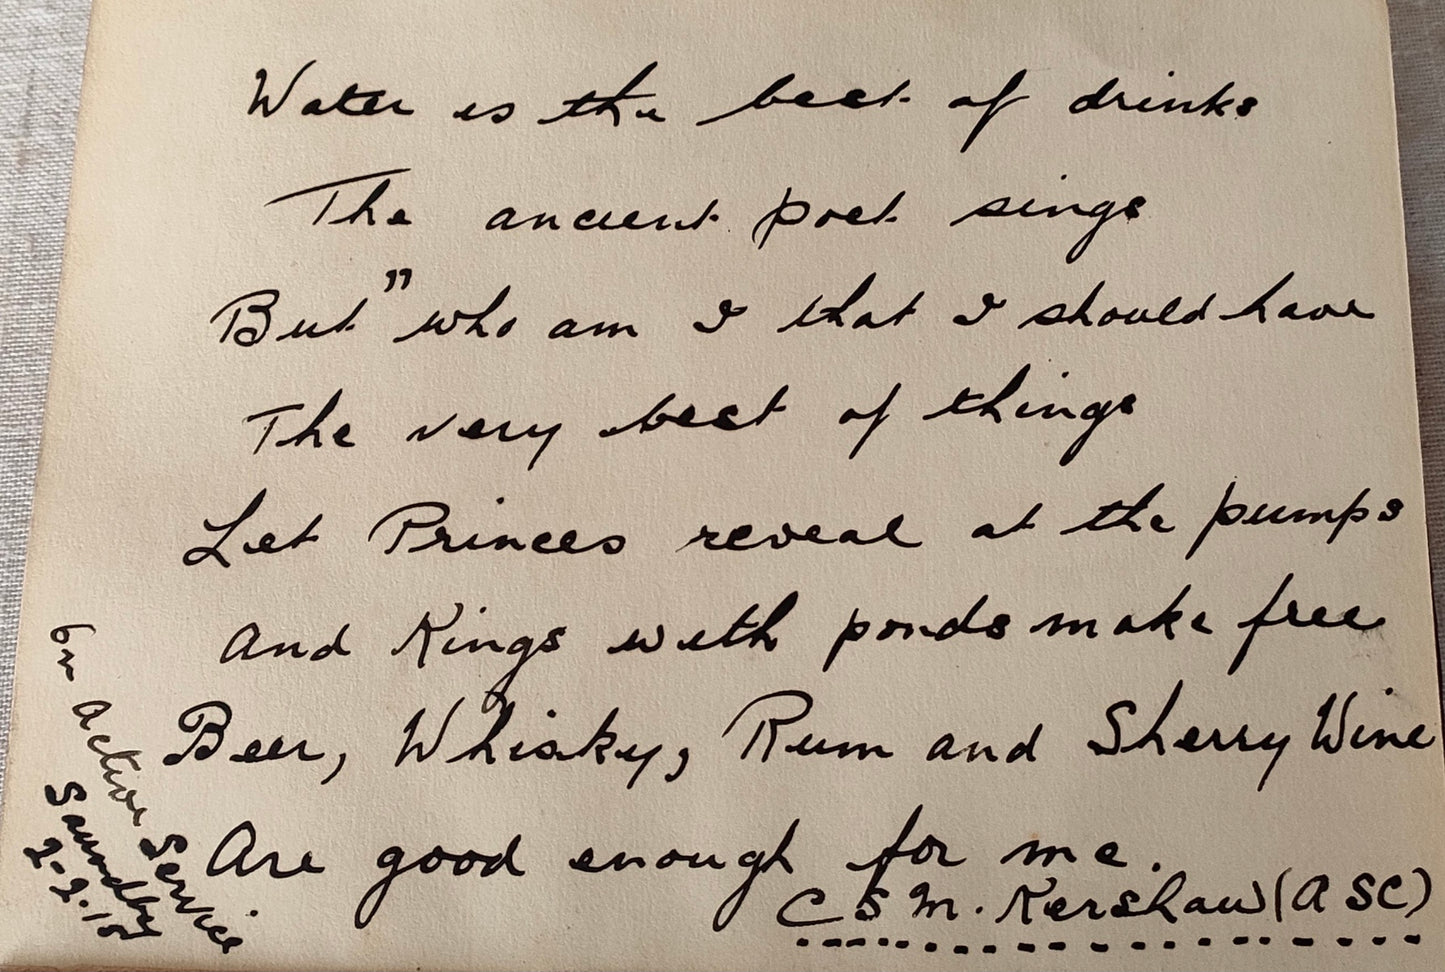 Water is the best of drinks
The ancient poet sings
But "who am I that I should have
The very best of things
Let Princes reveal at the pumps
And Kings with ponds make free
Beer, Whisky, Rum and Sherry Wine
Are good enough for me.
C S M. Kershaw (A S C)
on Active Service
Saundby
2-2-15